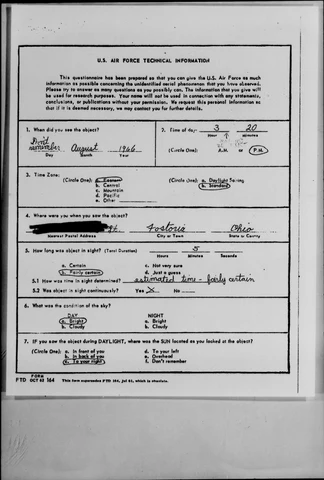 U.S. AIR FORCE TECHNICAL INFORMATION
This questionnaire has been prepared so that you can give the U.S. Air Force as much
information as possible concerning the unidentified aerial phenomenon that you have observed.
Please try to answer as many questions as you possibly can. The information that you give will
be used for research purposes. Your name will not be used in connection with any statements,
conclusions, or publications without your permission. We request this personal information so
that if it is deemed necessary, we may contact you for further details.
1. When did you see the object?
Don't
remember August 1966
Day Month Year
2. Time of day: 3 20
Hour Minutes
(Circle One): A.M. or P.M.
3. Time Zone:
(Circle One): a. Eastern
b. Central
c. Mountain
d. Pacific
e. Other
(Circle One): a. Daylight Saving
b. Standard
4. Where were you when you saw the object?
Fostoria Ohio
Nearest Postal Address City or Town State or County
5. How long was object in sight? (Total Duration) 5
Hours Minutes Seconds
a. Certain c. Not very sure
b. Fairly certain d. Just a guess
5.1 How was time in sight determined? estimated time - fairly certain
5.2 Was object in sight continuously? Yes X No
6. What was the condition of the sky?
DAY NIGHT
a. Bright a. Bright
b. Cloudy b. Cloudy
7. IF you saw the object during DAYLIGHT, where was the SUN located as you looked at the object?
(Circle One): a. In front of you d. To your left
b. In back of you e. Overhead
c. To your right f. Don't remember
FORM
FTD OCT 62 164 This form supersedes FTD 164, Jul 61, which is obsolete.